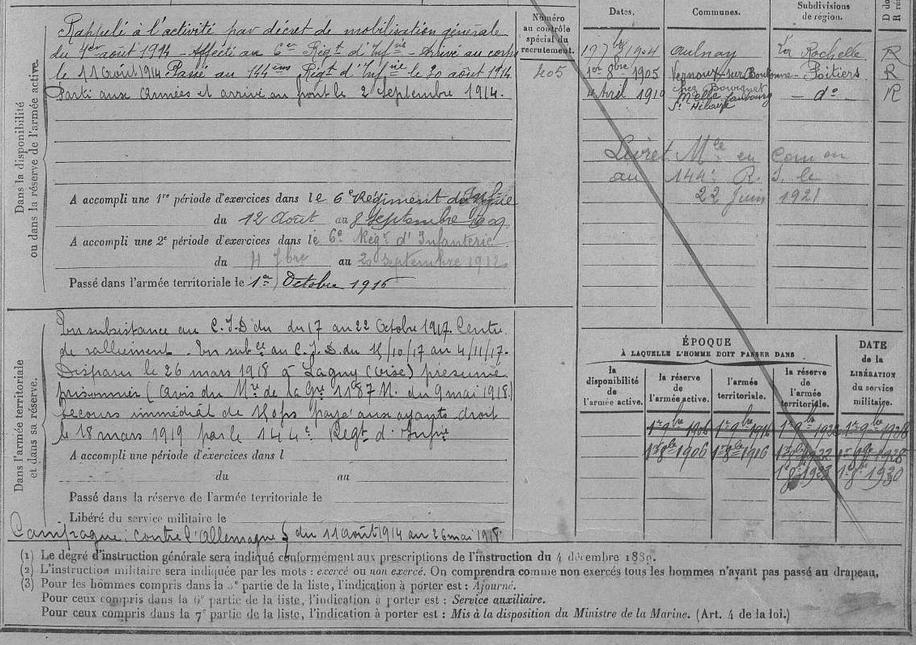 Dans la disponibilité
ou dans la réserve de l'armée active.
Rappelé à l'activité par décret de mobilisation générale
du 1er août 1914 - Affecté au 6e Régt d'Infie - Arrivé au corps
le 11 août 1914 Passé au 144ème Régt d'Infie le 20 août 1914
Parti aux Armées et arrivé au front le 2 septembre 1914.
A accompli une 1re période d'exercices dans le 6e Régiment
du 12 Août au 8 septembre 1909
A accompli une 2e période d'exercices dans le 6e Régt d'Infanterie
du 4 7bre au 20 Septembre 1912
Passé dans l'armée territoriale le 1er Octobre 1916
Numéro
au contrôle
spécial du
recrutement.
405
Dates.
Communes.
Subdivisions
de région.
1904 Aulnay La Rochelle R
1er 8bre 1905 Vernoux-sur-Boutonne - Poitiers R
Avril 1919 chez Bourguet
Melle faubourg - do - R
St Hilaire
Livret Mle en
au 144e R. I. le
22 Juin 1921
Dans l'armée territoriale
et dans sa réserve.
En subsistance au C.I.D du 17 au 22 Octobre 1917. Centre
de ralliement. En subce au C.I.D. du 18/10/17 au 4/11/17.
Disparu le 26 mars 1918 à Lagny (Oise) présumé
prisonnier (Avis du Mre de la Gre 1187 N. du 9 mai 1918)
secours immédiat de payé aux ayants droit
le 18 mars 1919 par le 144e Regt d'Infie
A accompli une période d'exercices dans l
du au
Passé dans la réserve de l'armée territoriale le
Libéré du service militaire le
Campagne : contre l'Allemagne du 11 août 1914 au 26 mai 1918
ÉPOQUE
À LAQUELLE L'HOMME DOIT PASSER DANS
la
disponibilité
de
l'armée active.
la réserve
de
l'armée active.
l'armée
territoriale.
la réserve
de l'armée
territoriale.
DATE
de la
LIBÉRATION
du service
militaire.
1er 8bre 1906 1er 8bre 1916
1930
(1) Le degré d'instruction générale sera indiqué conformément aux prescriptions de l'instruction du 4 décembre 1889.
(2) L'instruction militaire sera indiquée par les mots : exercé ou non exercé. On comprendra comme non exercés tous les hommes n'ayant pas passé au drapeau,
(3) Pour les hommes compris dans la partie de la liste, l'indication à porter est : Ajourné.
Pour ceux compris dans la 6e partie de la liste, l'indication à porter est : Service auxiliaire.
Pour ceux compris dans la 7e partie de la liste, l'indication à porter est : Mis à la disposition du Ministre de la Marine. (Art. 4 de la loi.)